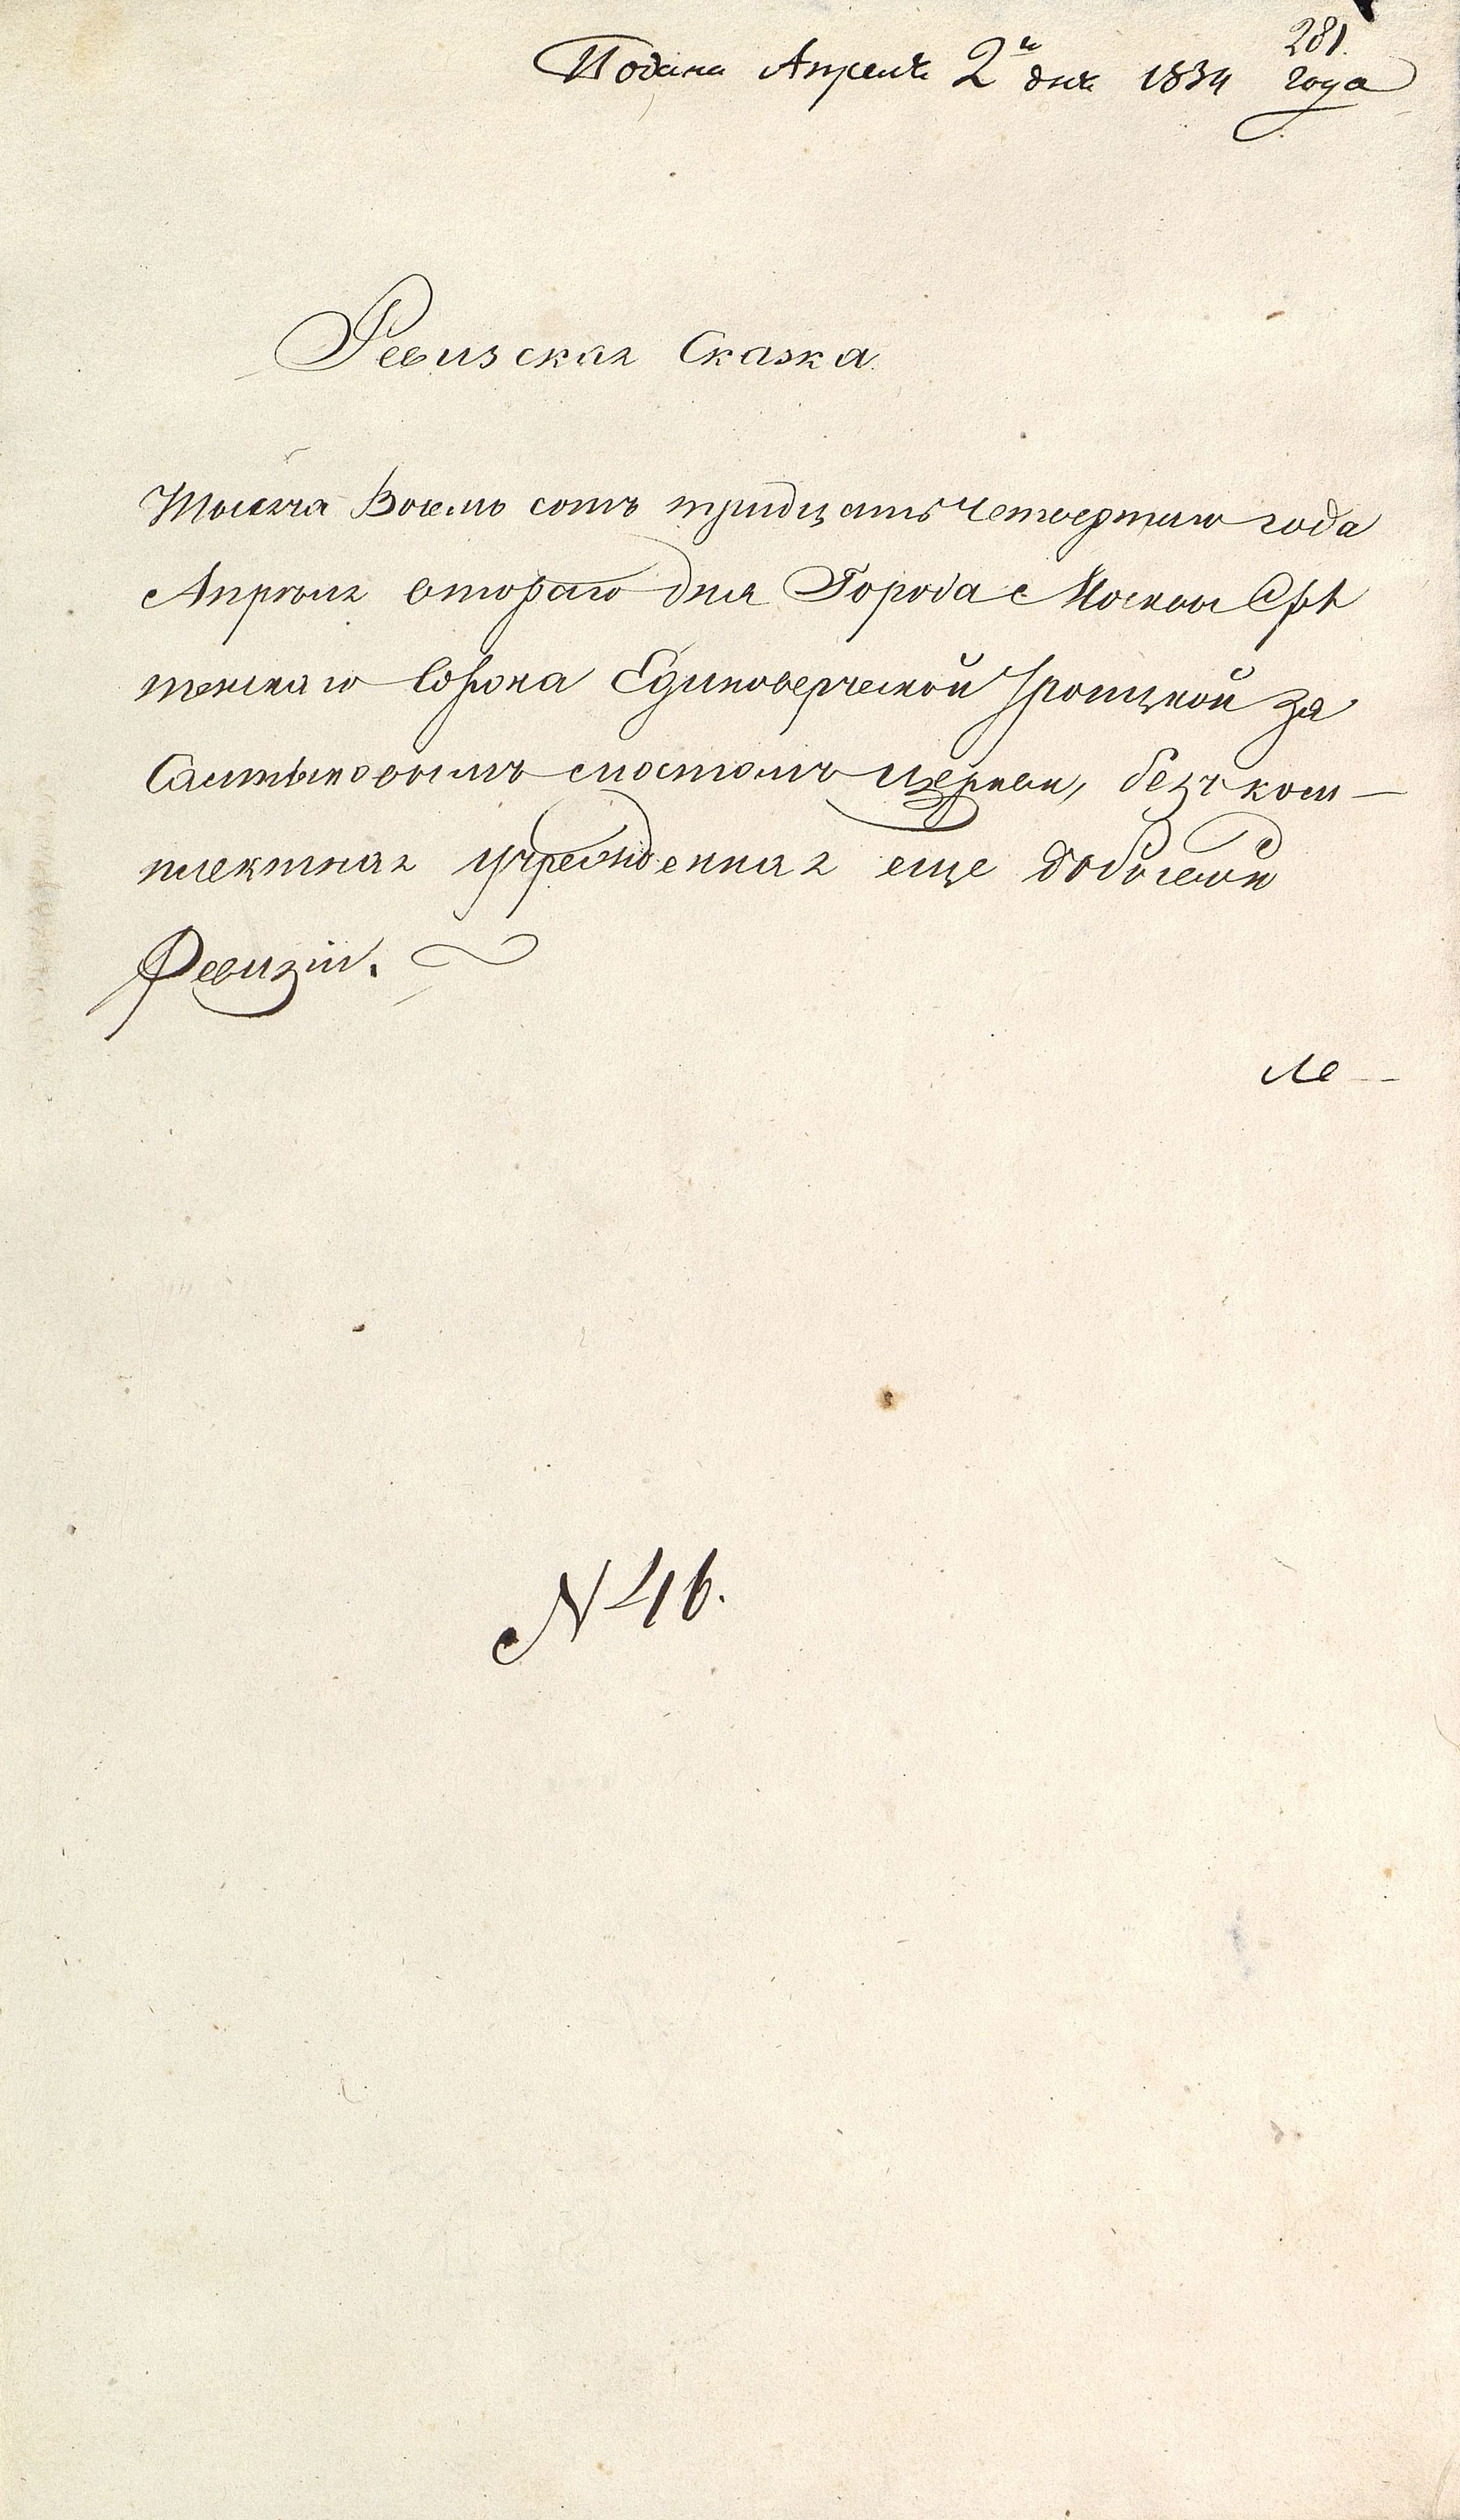 281.
Подана Апреля 2го дня 1834 года
Ревизская Сказка.
Тысеча Восемь сотъ тридцать четвертаго года
Апрѣля втораго дня Города Москвы Срѣ
тенскаго Сорока Единоверческой Троицкой за
Салтыковымъ мостомъ церкви, безъ ком—
плектная учрежденная еще до
Ревизіи.
N 46.